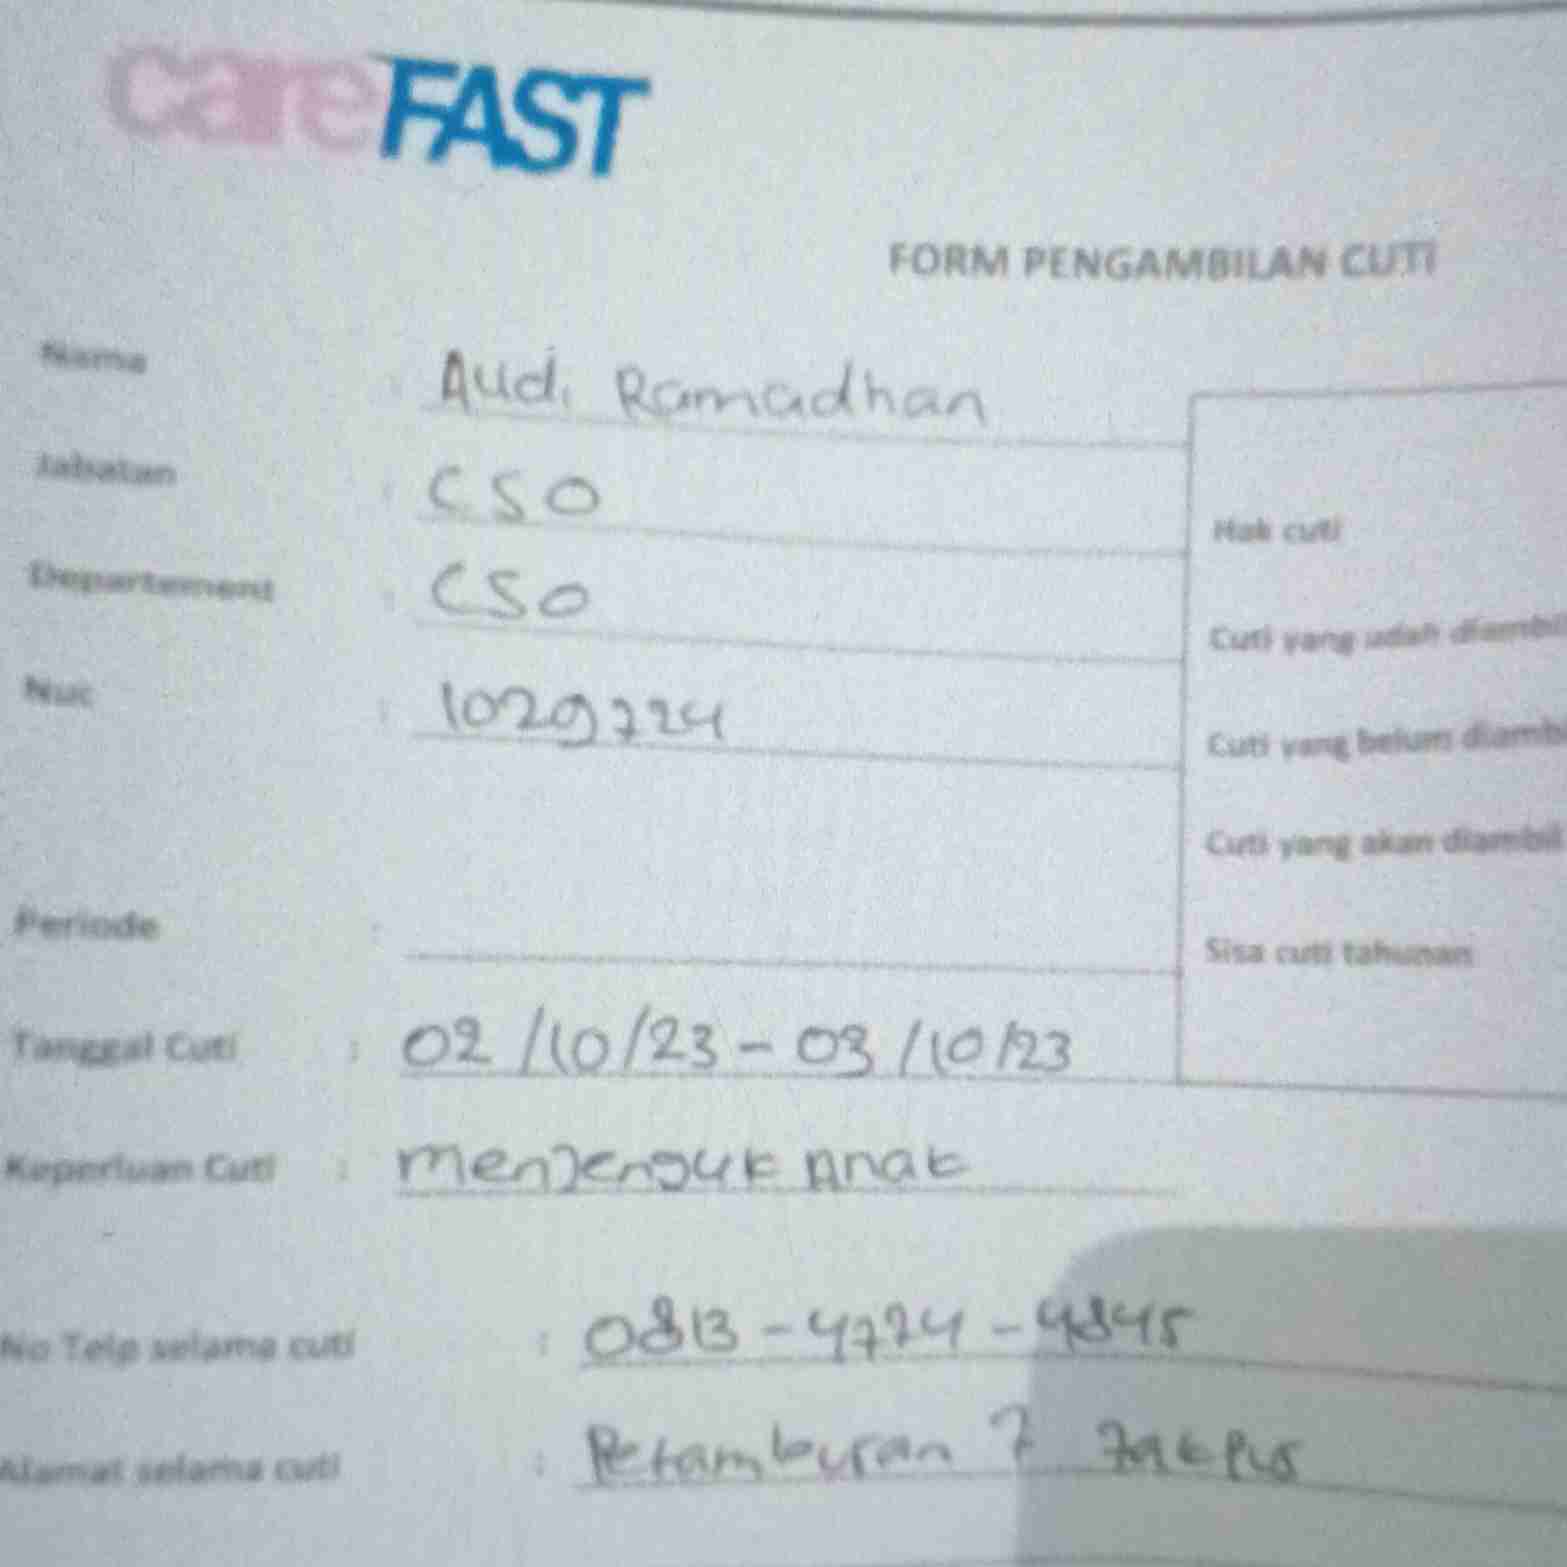 careFAST
FORM PENGAMBILAN CUTI
Nama : Audi Ramadhan
Jabatan : CSO
Departement : CSO
Nuc : 1029724
Periode :
Tanggal Cuti : 02/10/23 - 03/10/23
Keperluan Cuti : menjenguk Anak
No Telp selama cuti : 0813 - 4774 - 4845
Alamat selama cuti : Petamburan 7 Jakpus
Hak cuti
Cuti yang udah diambil
Cuti yang belum diambi
Cuti yang akan diambil
Sisa cuti tahunan